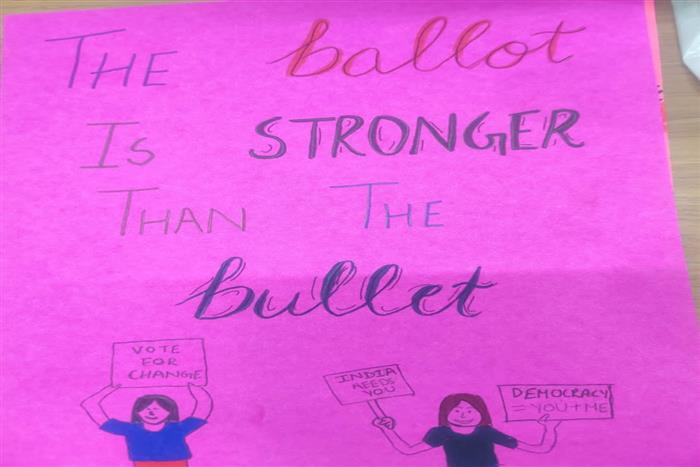 THE ballot
IS STRONGER
THAN THE
bullet
VOTE
FOR
CHANGE
INDIA
NEEDS
YOU
DEMOCRACY
= YOU+ME